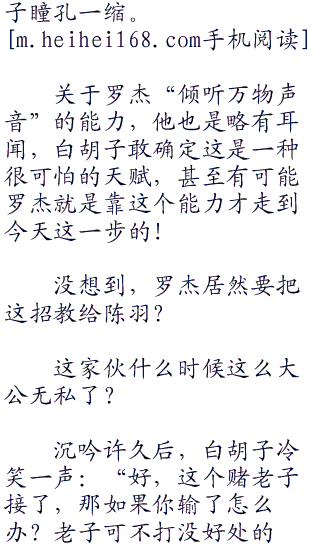 子瞳孔一缩。
[m.heihei168.com手机阅读]
关于罗杰“倾听万物声
音”的能力，他也是略有耳
闻，白胡子敢确定这是一种
很可怕的天赋，甚至有可能
罗杰就是靠这个能力才走到
今天这一步的！
没想到，罗杰居然要把
这招教给陈羽？
这家伙什么时候这么大
公无私了？
沉吟许久后，白胡子冷
笑一声：“好，这个赌老子
接了，那如果你输了怎么
办？老子可不打没好处的